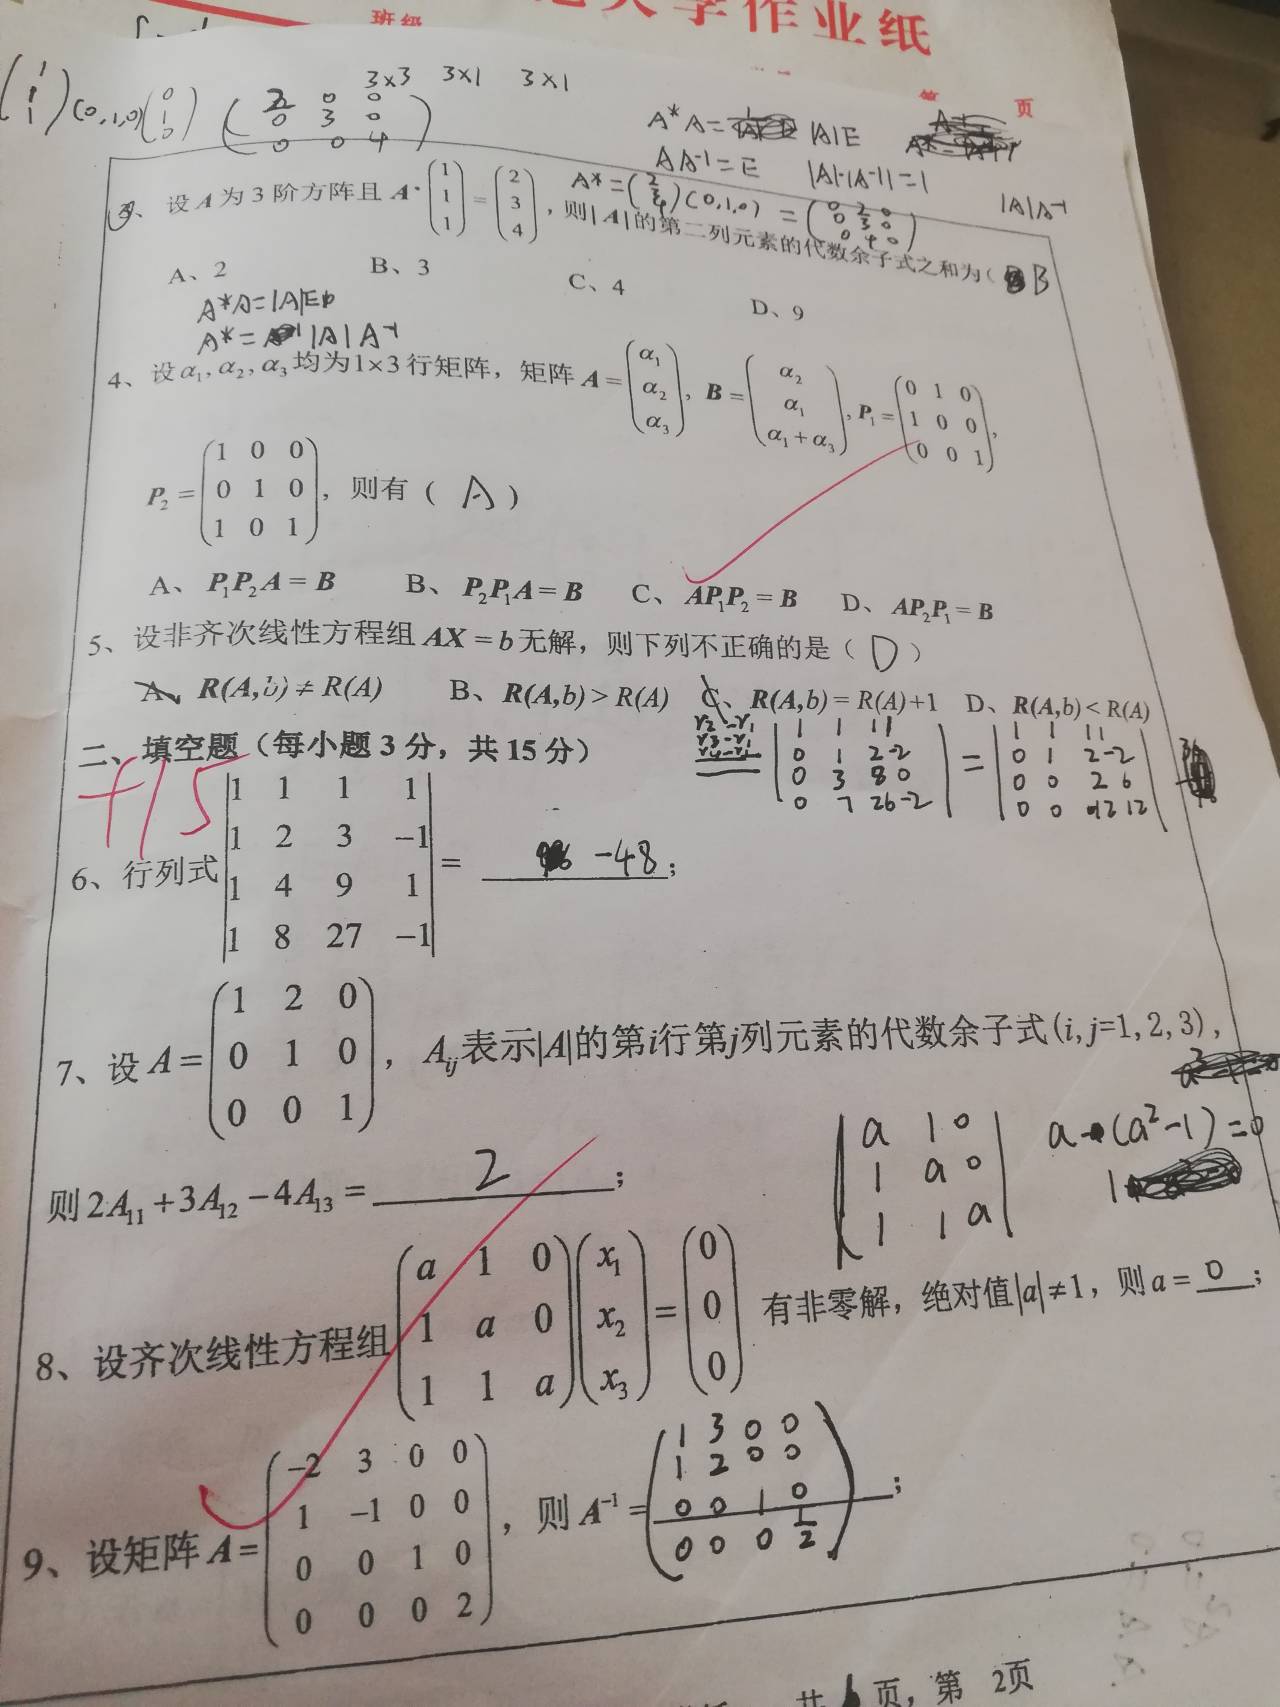 大学作业纸
班级
页
3×3 3×1 3×1
(1 1 1) (0,1,0) (0 1 0)
(2 0 0
0 3 0
0 0 4)
A*A= |A|E
AA⁻¹=E |A|·|A⁻¹|=1
|A|A⁻¹
A*=(2 3 4)(0,1,0) = (0 2 0
0 3 0
0 4 0)
3、设A为3阶方阵且A·(1 1 1)=(2 3 4),则|A|的第二列元素的代数余子式之和为( B
A、2 B、3 C、4 D、9
A*A=|A|E
A*= |A|A⁻¹
4、设α₁,α₂,α₃均为1×3行矩阵,矩阵A=(α₁ α₂ α₃), B=(α₂ α₁ α₁+α₃), P₁=(0 1 0
1 0 0
0 0 1),
P₂=(1 0 0
0 1 0
1 0 1), 则有( A )
A、P₁P₂A=B B、P₂P₁A=B C、AP₁P₂=B D、AP₂P₁=B
5、设非齐次线性方程组AX=b无解,则下列不正确的是( D )
A、R(A,b)≠R(A) B、R(A,b)>R(A) C、R(A,b)=R(A)+1 D、R(A,b)<R(A)
二、填空题(每小题3分,共15分)
+15
r₂-r₁
r₃-r₁
r₄-r₁
|1 1 1 1
0 1 2 -2
0 3 8 0
0 7 26 -2|
= |1 1 1 1
0 1 2 -2
0 0 2 6
0 0 12 12|
6、行列式|1 1 1 1
1 2 3 -1
1 4 9 1
1 8 27 -1| = -48;
7、设A=(1 2 0
0 1 0
0 0 1), Aᵢⱼ表示|A|的第i行第j列元素的代数余子式(i,j=1,2,3),
则2A₁₁+3A₁₂-4A₁₃= 2 ;
|a 1 0
1 a 0
1 1 a|
a(a²-1)=0
8、设齐次线性方程组(a 1 0
1 a 0
1 1 a)(x₁ x₂ x₃)=(0 0 0)有非零解,绝对值|a|≠1,则a= 0 ;
9、设矩阵A=(-2 3 0 0
1 -1 0 0
0 0 1 0
0 0 0 2), 则A⁻¹=(1 3 0 0
1 2 0 0
0 0 1 0
0 0 0 1/2);
共 页,第 2页